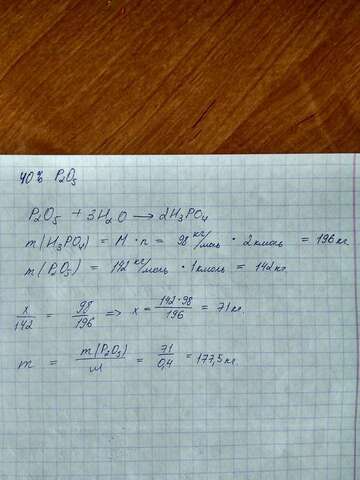 40% P₂O₅
P₂O₅ + 3H₂O → 2H₃PO₄
m(H₃PO₄) = M · n = 98 кг/моль · 2 кмоль = 196 кг.
m(P₂O₅) = 142 кг/моль · 1 кмоль = 142 кг.
x/142 = 98/196 => x = 142·98/196 = 71 кг.
m = m(P₂O₅)/ω = 71/0,4 = 177,5 кг.